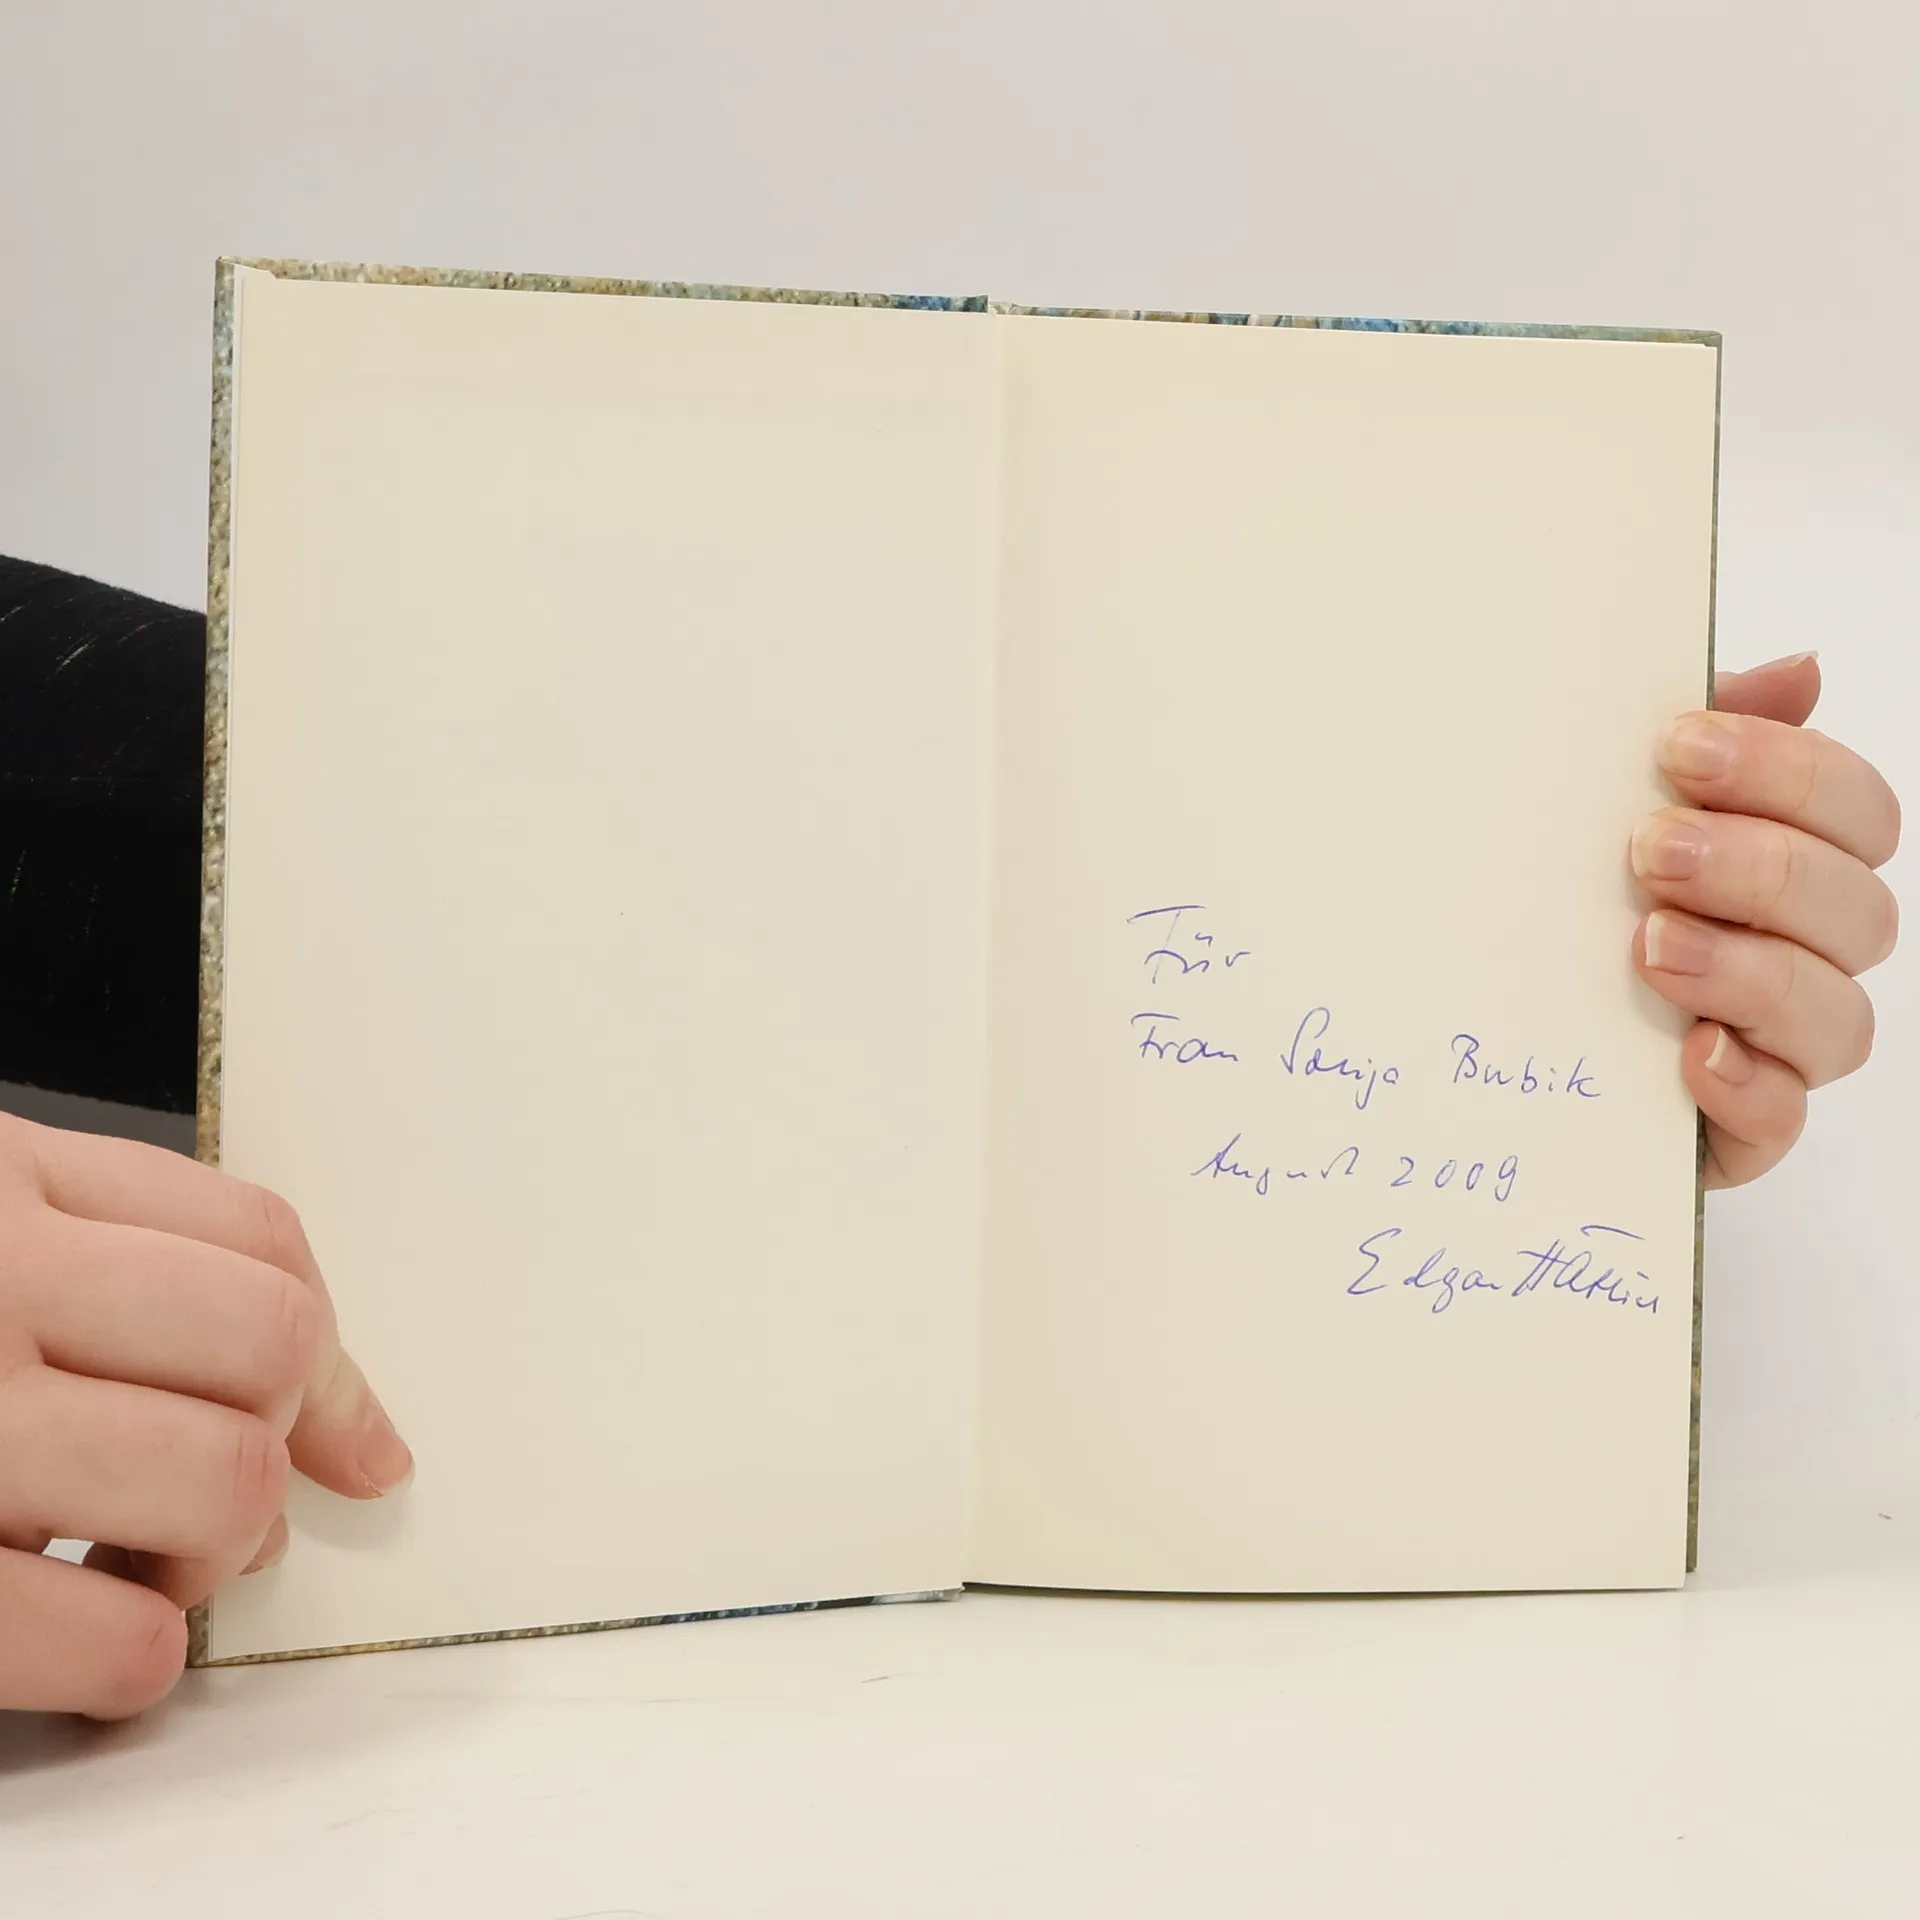 Für
Frau Sonja Bubik
August 2009
Edgar